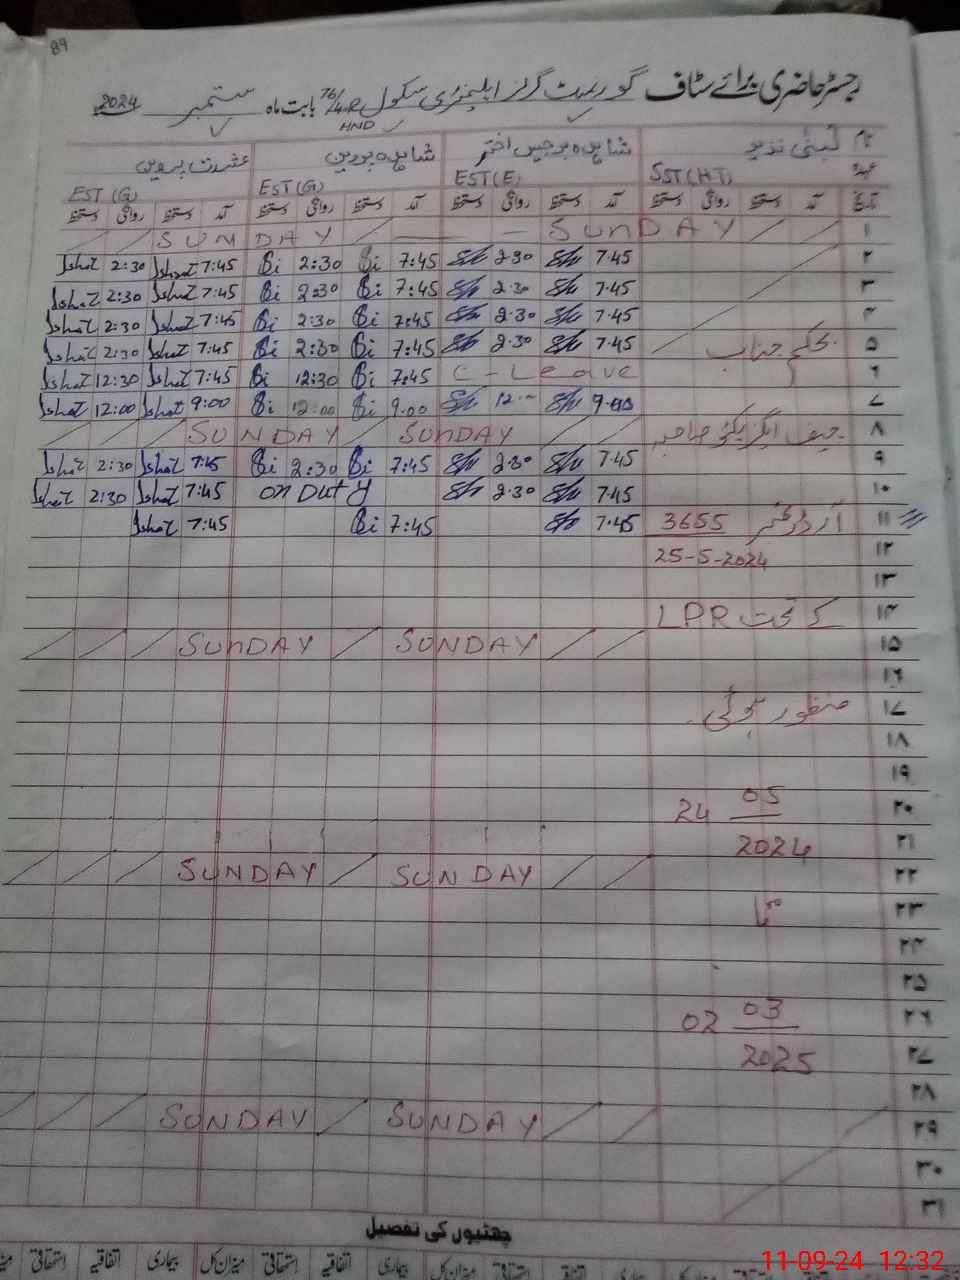 89
رجسٹر حاضری برائے سٹاف گورنمنٹ گرلز ایلیمنٹری سکول 76/4.R بابت ماہ ستمبر 2024
HND
نام لبنیٰ نذیر شاہدہ برجیس اختر شاہدہ پروین عشرت پروین
عہدہ SST(HT) EST(E) EST(G) EST(G)
تاریخ آمد دستخط روانگی دستخط آمد دستخط روانگی دستخط آمد دستخط روانگی دستخط آمد دستخط روانگی دستخط
۱ SUNDAY SUNDAY
۲ 7.45 2.30 7:45 Si 2:30 Si 7:45 Ishat 2:30 Ishat
۳ 7.45 2.30 7:45 Si 2:30 Si 7:45 Ishat 2:30 Ishat
۴ 7.45 2.30 7:45 Si 2:30 Si 7:45 Ishat 2:30 Ishat
۵ بحکم جناب 7.45 2.30 7:45 Si 2:30 Si 7:45 Ishat 2:30 Ishat
۶ C-Leave 7:45 Si 12:30 Si 7:45 Ishat 12:30 Ishat
۷ 9.00 12.- 9.00 Si 12:00 Si 9:00 Ishat 12:00 Ishat
۸ چیف ایگزیکٹو صاحبہ SUNDAY SUNDAY
۹ 7.45 2.30 7:45 Si 2:30 Si 7:45 Ishat 2:30 Ishat
۱۰ 7.45 2.30 on Duty 7:45 Ishat 2:30 Ishat
۱۱ آرڈر نمبر 3655 7.45 7:45 Si 7:45 Ishat
۱۲ 25-5-2024
۱۳
۱۴ کے تحت LPR
۱۵ SUNDAY SUNDAY
۱۶
۱۷ منظور ہوئی۔
۱۸
۱۹
۲۰ 24 05
۲۱ 2024
۲۲ SUNDAY SUNDAY
۲۳ تا
۲۴
۲۵
۲۶ 02 03
۲۷ 2025
۲۸
۲۹ SUNDAY SUNDAY
۳۰
۳۱
چھٹیوں کی تفصیل
اتفاقیہ بیماری میزان کل استحقاقی اتفاقیہ بیماری میزان کل استحقاقی
11-09-24 12:32